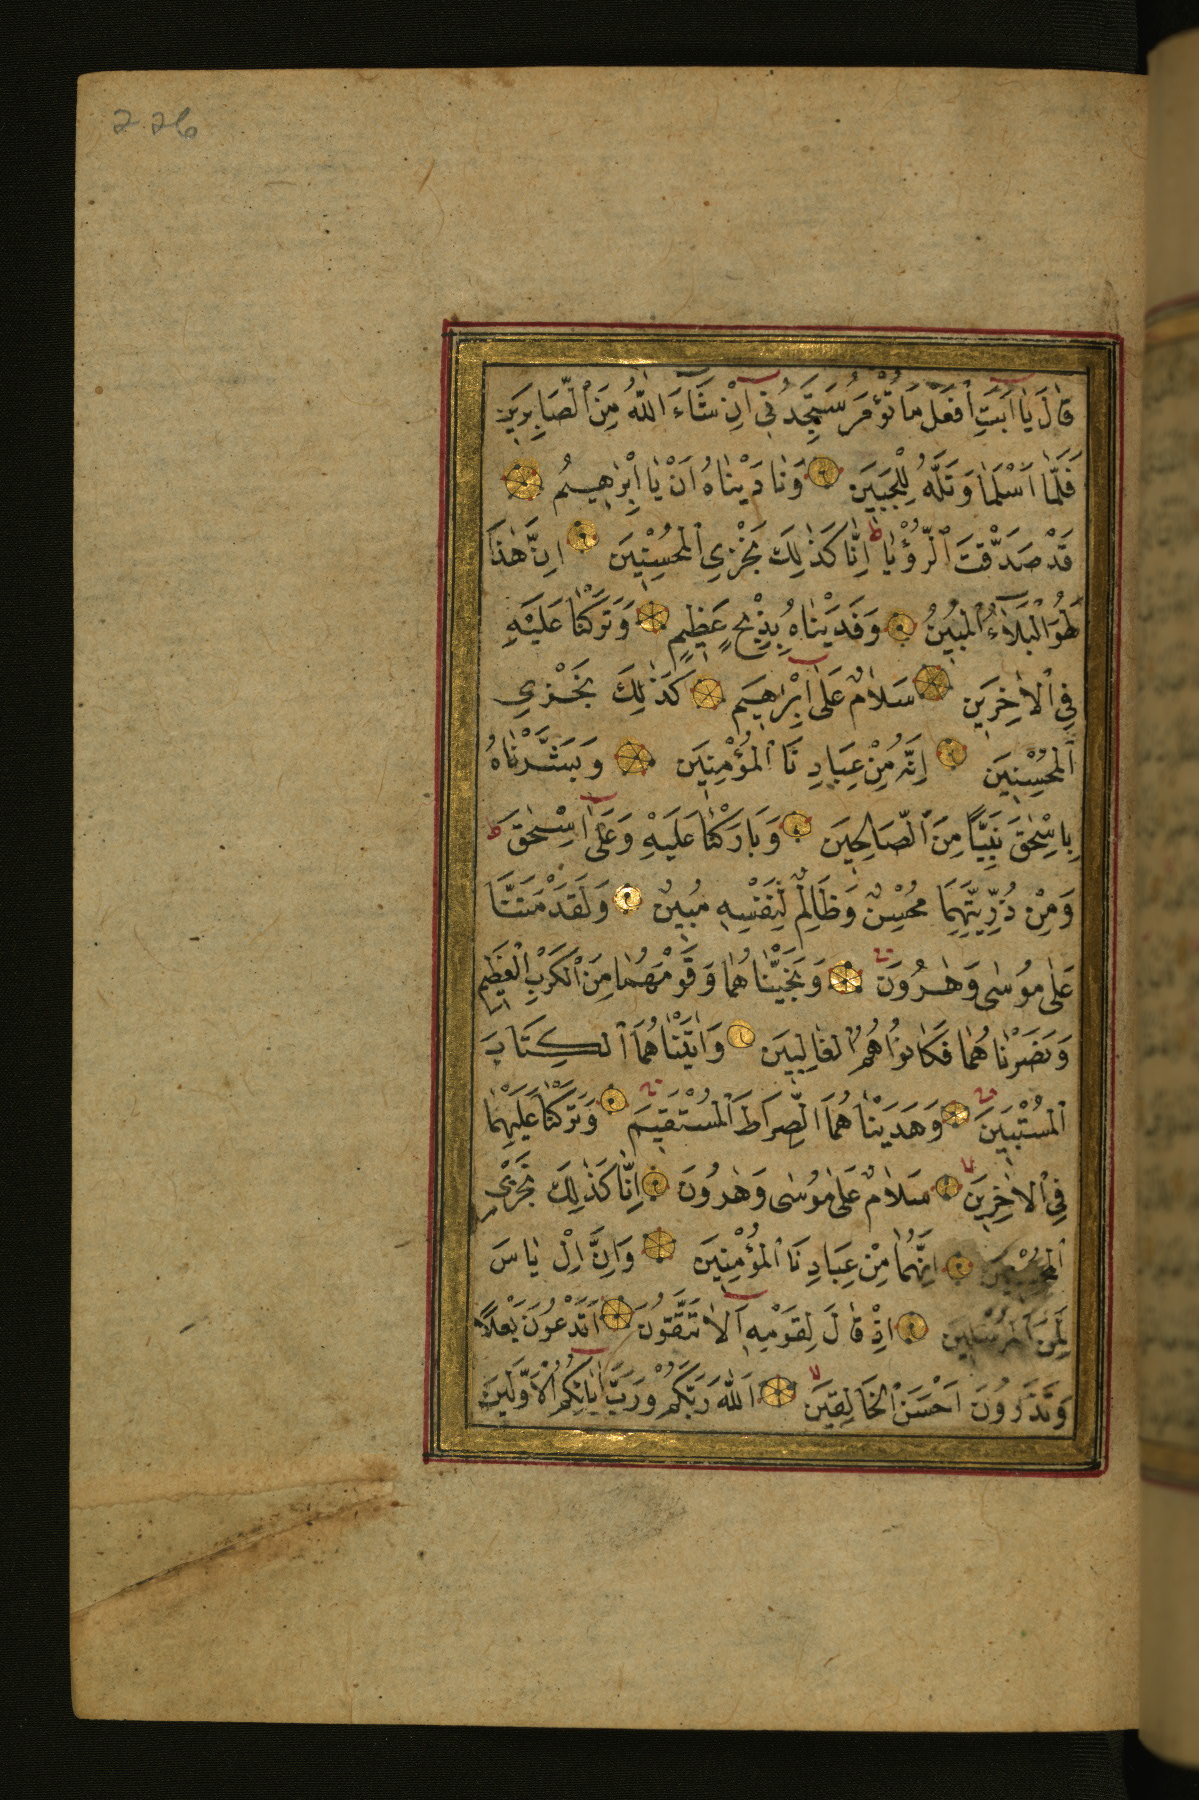 226
قَالَ يَا اَبَتِ افْعَلْ مَا تُؤْمَرُ سَتَجِدُنِي اِنْ شَاءَ اللّٰهُ مِنَ الصَّابِرِينَ
فَلَمَّا اَسْلَمَا وَتَلَّهُ لِلْجَبِينِ وَنَادَيْنَاهُ اَنْ يَا اِبْرٰهِيمُ
قَدْ صَدَّقْتَ الرُّؤْيَا ط اِنَّا كَذٰلِكَ نَجْزِي الْمُحْسِنِينَ اِنَّ هٰذَا
لَهُوَ الْبَلَاءُ الْمُبِينُ وَفَدَيْنَاهُ بِذِبْحٍ عَظِيمٍ وَتَرَكْنَا عَلَيْهِ
فِي الْاٰخِرِينَ سَلَامٌ عَلٰى اِبْرٰهِيمَ كَذٰلِكَ نَجْزِي
الْمُحْسِنِينَ اِنَّهُ مِنْ عِبَادِنَا الْمُؤْمِنِينَ وَبَشَّرْنَاهُ
بِاِسْحٰقَ نَبِيًّا مِنَ الصَّالِحِينَ وَبَارَكْنَا عَلَيْهِ وَعَلٰى اِسْحٰقَ ط
وَمِنْ ذُرِّيَّتِهِمَا مُحْسِنٌ وَظَالِمٌ لِنَفْسِهِ مُبِينٌ وَلَقَدْ مَنَنَّا
عَلٰى مُوسٰى وَهٰرُونَ وَنَجَّيْنَاهُمَا وَقَوْمَهُمَا مِنَ الْكَرْبِ الْعَظِيمِ
وَنَصَرْنَاهُمَا فَكَانُوا هُمُ الْغَالِبِينَ وَاٰتَيْنَاهُمَا الْكِتَابَ
الْمُسْتَبِينَ وَهَدَيْنَاهُمَا الصِّرَاطَ الْمُسْتَقِيمَ وَتَرَكْنَا عَلَيْهِمَا
فِي الْاٰخِرِينَ لا سَلَامٌ عَلٰى مُوسٰى وَهٰرُونَ اِنَّا كَذٰلِكَ نَجْزِي
الْمُحْسِنِينَ اِنَّهُمَا مِنْ عِبَادِنَا الْمُؤْمِنِينَ وَاِنَّ اِلْ يَاسَ
لَمِنَ الْمُرْسَلِينَ اِذْ قَالَ لِقَوْمِهِ اَلَا تَتَّقُونَ اَتَدْعُونَ بَعْلًا
وَتَذَرُونَ اَحْسَنَ الْخَالِقِينَ لا اَللّٰهَ رَبَّكُمْ وَرَبَّ اٰبَائِكُمُ الْاَوَّلِينَ